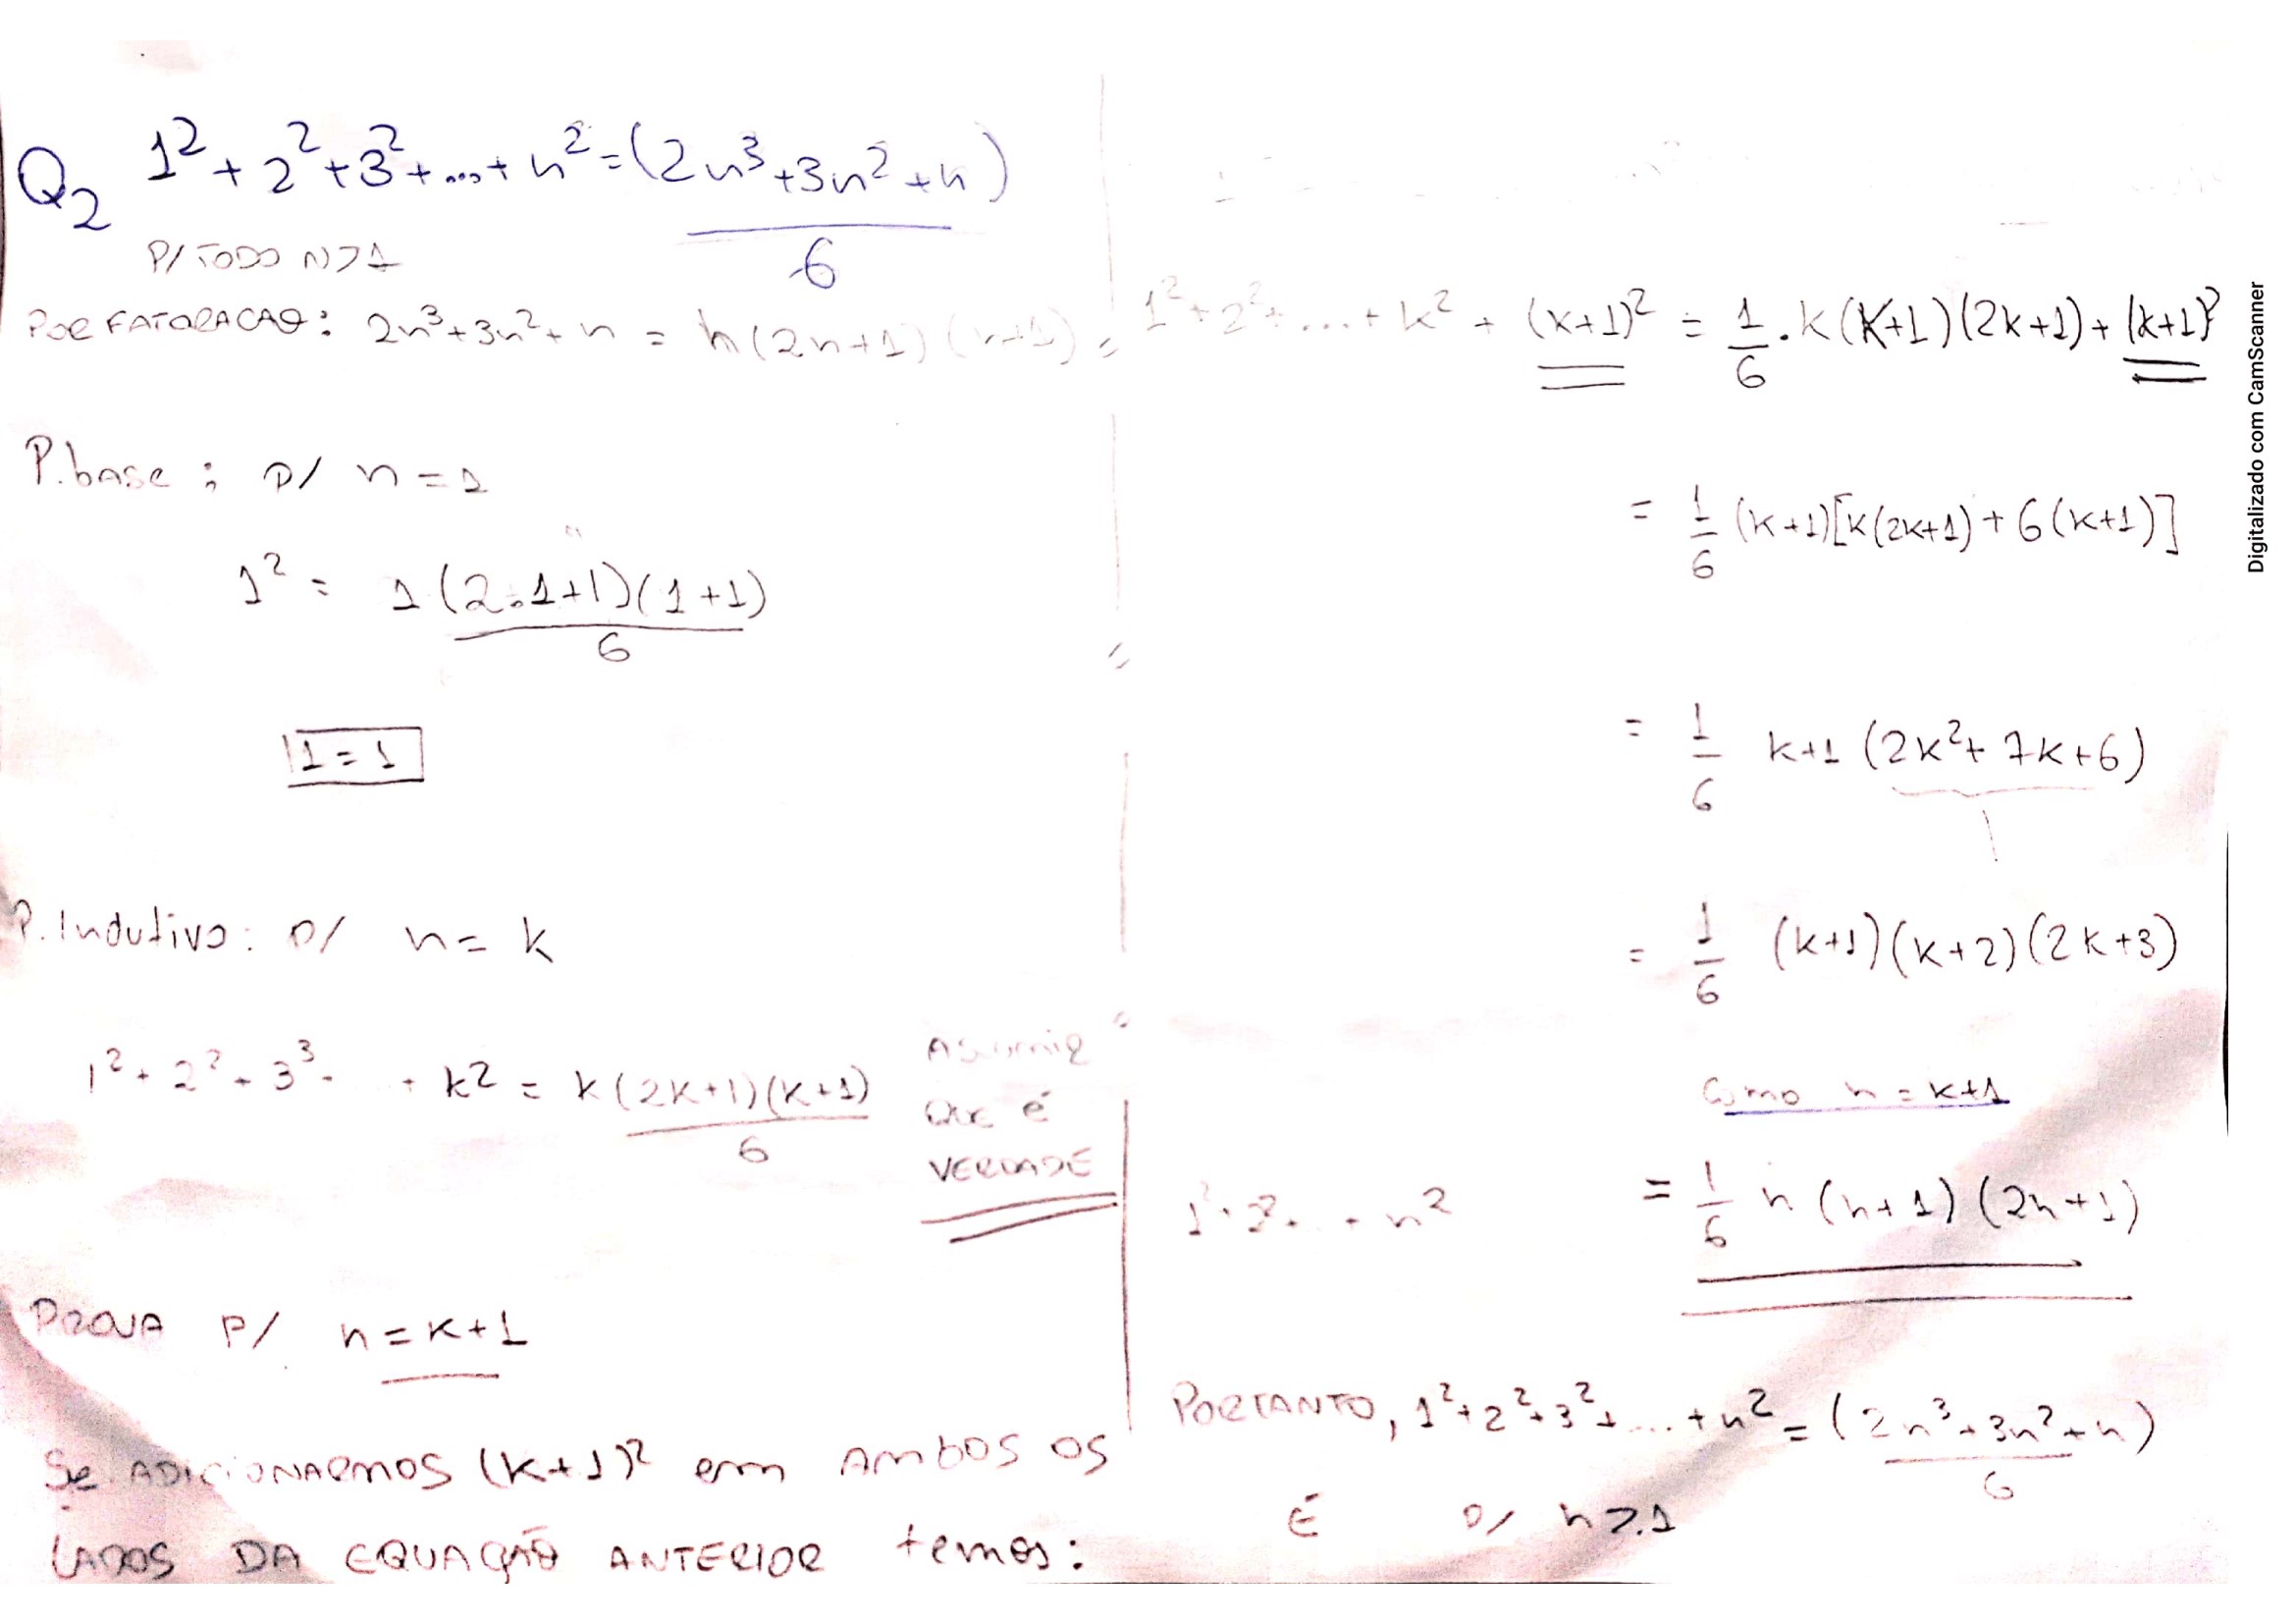 Q2 1² + 2² + 3² + ... + n² = (2n³ + 3n² + n)
6
P/ TODO N>1
POR FATORACAO: 2n³ + 3n² + n = n(2n+1)(n+1)
P.base : p/ n = 1
1² = 1(2.1+1)(1+1)
6
1 = 1
P. Indutivo: p/ n = k
1² + 2² + 3³ . + k² = k(2k+1)(k+1)
6
ASSUMIR
QUE É
VERDADE
PROVA P/ n = k+1
Se ADICIONARMOS (k+1)² em AMBOS OS
LADOS DA EQUAÇÃO ANTERIOR temos:
1² + 2² + ... + k² + (k+1)² = 1/6 . k(k+1)(2k+1) + (k+1)²
= 1/6 (k+1)[k(2k+1) + 6(k+1)]
= 1/6 k+1 (2k² + 7k + 6)
= 1/6 (k+1)(k+2)(2k+3)
Como n = k+1
1² + 2² . . . + n² = 1/6 n (n+1)(2n+1)
PORTANTO, 1² + 2² + 3² + ... + n² = (2n³ + 3n² + n)
6
É p/ n ≥ 1
Digitalizado com CamScanner